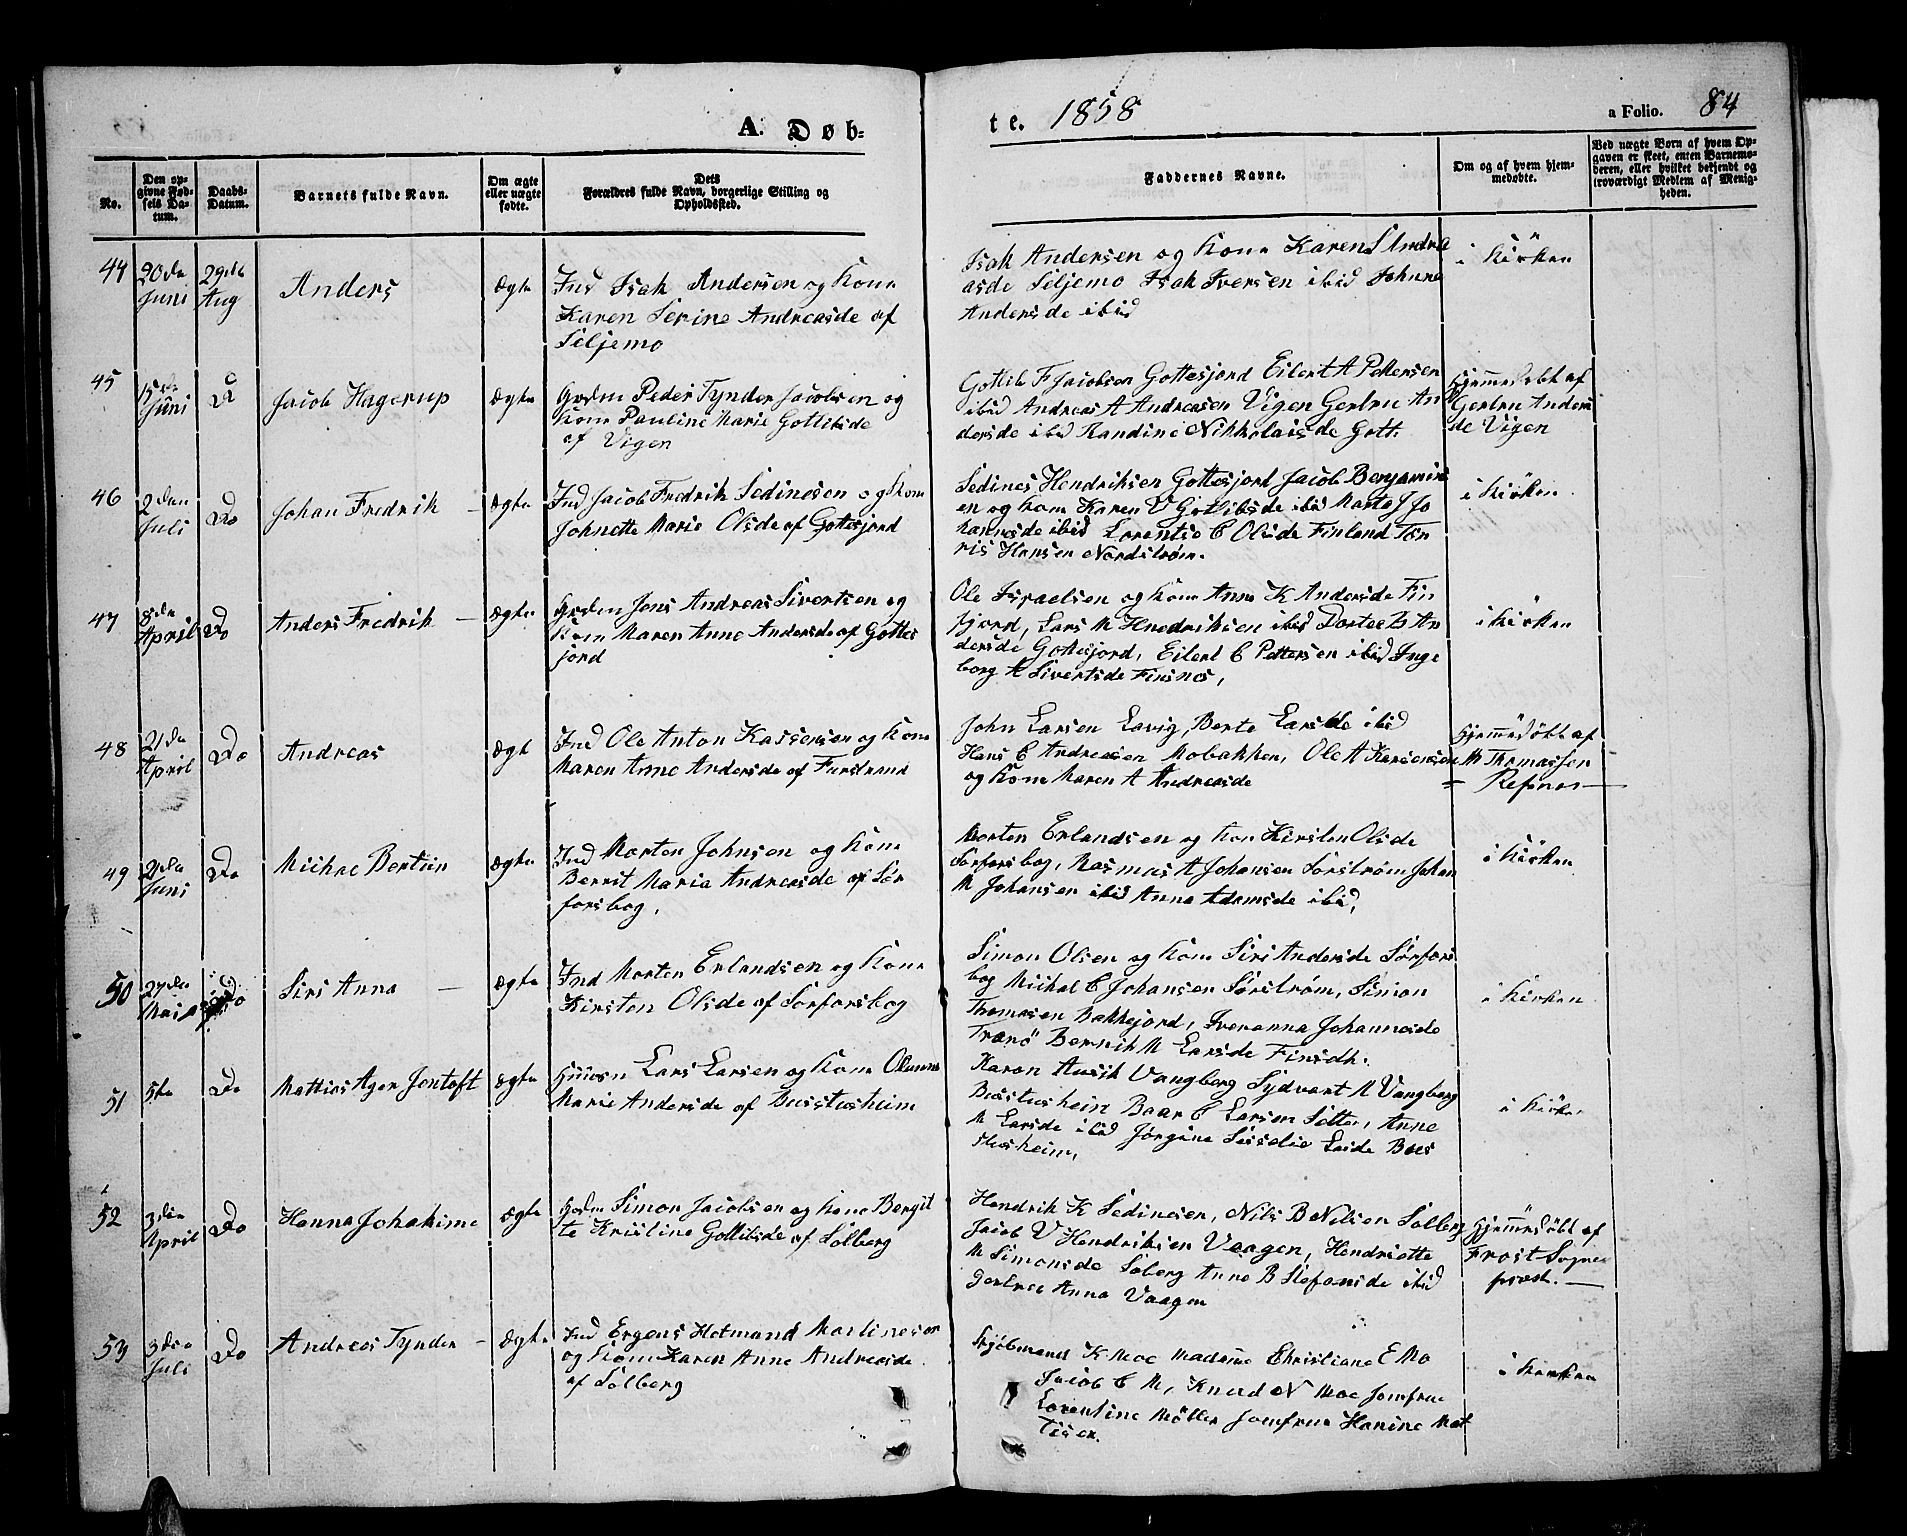 A. Døb=
te. 1858
a Folio. 84
No.
Den op-
givne Fød-
sels Da-
tum.
Daabs-
Datum.
Barnets fulde Navn.
Om ægte
eller uægte
fødte.
Dets
Forældres fulde Navn, borgerlige Stilling og
Opholdssted.
Faddernes Navne.
Om og af hvem hjem-
medøbte.
Ved uægte Børn af hvem Op-
gaven er skeet, enten Barnemo-
deren, eller hvilket bekjendt og
troværdigt Medlem af Menig-
heden.
44
20de
Juni
29de
Aug
Anders
Ægte
Ind Isak Andersen og Kone
Karen Serine Andreasde af
Siljemo
Isak Andersen og Kone Karen S Andre
asde Siljemo Isak Iversen ibid Johnna
Andersde ibid
i Kirken
45
15de
Juni
Do
Jacob Hagerup
Ægte
Grdm Peder Tynder Jacobsen og
Kone Pauline Marie Gottlibsde
af Vigen
Gottlib F Jacobsen Gottesjord Eilert A Pettersen
ibid Andreas A Andreasen Vigen Gertru An
dersde ibid Randine Nikkolaisde Gott.
Hjemmedøbt af
Gertru Anders
de Vigen
46
2den
Juli
Do
Johan Fredrik
Ægte
Ind Jacob Fredrik Sedinesen og Kone
Johnette Marie Olsde af Gottesjord
Sedines Hendriksen Gottesjord Jacob Benjamins
en og Kone Karen V Gotlibsde ibid Marta J Jo
hannesde ibid Lorentse C Olsde Finland Tør
ris Hansen Nordstrøm.
i Kirken
47
8de
April
Do
Anders Fredrik
Ægte
Grdm Jens Andreas Sivertsen og
Kone Maren Anne Andersde af Gottes
jord
Ole Israelsen og Kone Anne K Andersde Fin
fjord, Lars M Hendriksen ibid Dortee B An
dersde Gottesjord, Eilert C Pettersen ibid Inge
borg A Sivertsde Finsnes,
i Kirken
48
21de
April
Do
Andreas
Ægt
Ind Ole Anton Kassensen og Kone
Maren Anne Andersde af Furstrand
John Larsen Lavig, Berte Larsde ibid
Hans C Andreasen Mobakken, Ole A Karsensen
og Kone Maren A Andreasde
Hjemmedöbt af
M Thomassen
Refsnes
49
2den
Juni
Do
Michae Bertin
Ægte
Ind Morten Johnsen og Kone
Berrit Maria Andreasde af Sør
forsbog,
Morten Erlandsen og Kon Kirsten Olsde
Sørforsbog, Rasmus A Johansen Sørstrøm Johan
M Johansen ibid Anna Adamsde ibid,
i Kirken
50
27de
Mai
Do
Siri Anna
Ægte
Ind Morten Erlandsen og Kone
Kirsten Olsde af Sørforsbog
Simon Olsen og Kone Siri Andersde Sørfors
bog Michal C Johansen Sørstrøm, Simon
Thomasen Bakkejord, Iveranna Johannesde
Tranö Bernik M Larsde Finsdh.
i Kirken
51
5te
Do
Mathias Ager Jentoft
Ægte
Husm Lars Larsen og Kone Olianna
Marie Andersde af Buustusheim
Karen Husik Vangberg Sydvart M Vangberg
Buustushein Baar C Larsen Sølten, Anne
M Larsde ibid Jørgine Sissilie Larsde Buus
tusheim,
i Kirken
52
3die
April
Do
Hanna Johakime
Ægte
Grdm Simon Jacobsen og Kone Bergit
te Kristine Gottlibsde af Solberg
Hendrik K Sedinesen, Nils B Nilsen Solberg
Jacob V Hendriksen Vaagen, Hendriette
M Simonsde Soberg Anne B Stefansde ibid
Gertrec Anna Vaagen
Hjemmedöbt af
Frost Sogne
præst.
53
3die
Juli
Do
Andreas Tynder
Ægte
Ind Ergens Hetmand Martinesen
og Kone Karen Anne Andreasde
af Solberg
Kjöbmand K Moe Madamme Christiane E Mo
Jacob C M, Knud N Moe Jomfrue
Lorentine Möller Jomfrue Hanine Mat
tisen.
i Kirken